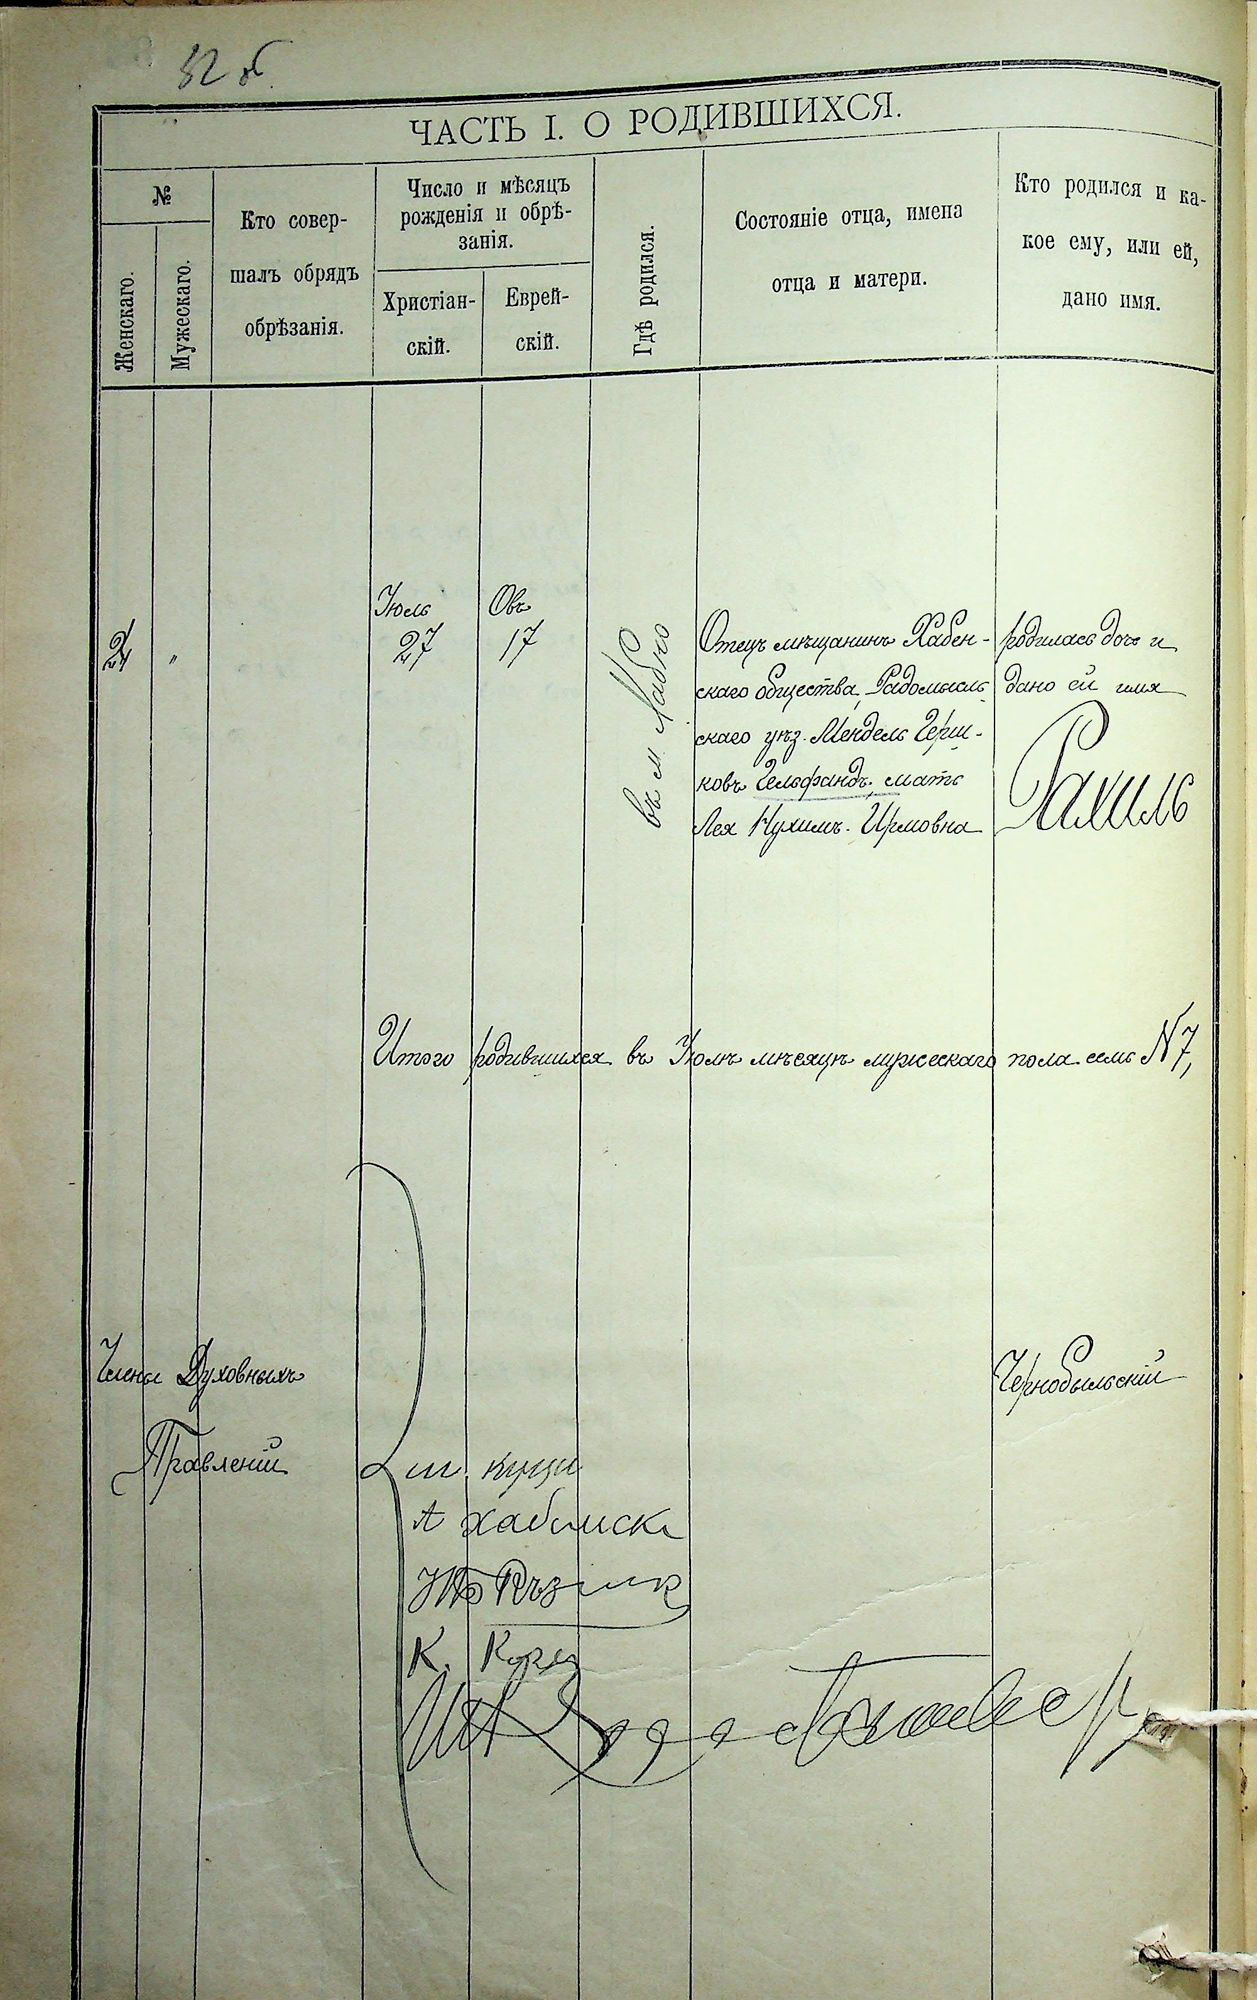 32 об.
ЧАСТЬ I. О РОДИВШИХСЯ.
№
Женскаго.
Мужескаго.
Кто совер-
шалъ обрядъ
обрѣзанія.
Число и мѣсяцъ
рожденія и обрѣ-
занія.
Христіан-
скій.
Еврей-
скій.
Гдѣ родился.
Состояніе отца, имена
отца и матери.
Кто родился и ка-
кое ему, или ей,
дано имя.
Іюль
27
Овъ
17
"
въ м. Хабно
Отецъ мѣщанинъ Хабен-
скаго общества, Радомысль
скаго уѣз. Мендель Герш-
ковъ Гельфандъ, мать
Лея Нухимъ-Ирмовна
родилась дочь и
дано ей имя
Рахиль
Итого родившихся въ Іюлѣ мѣсяцѣ мужескаго пола семь № 7,
Члены Духовныхъ
Правленій
Чернобыльскій
К.